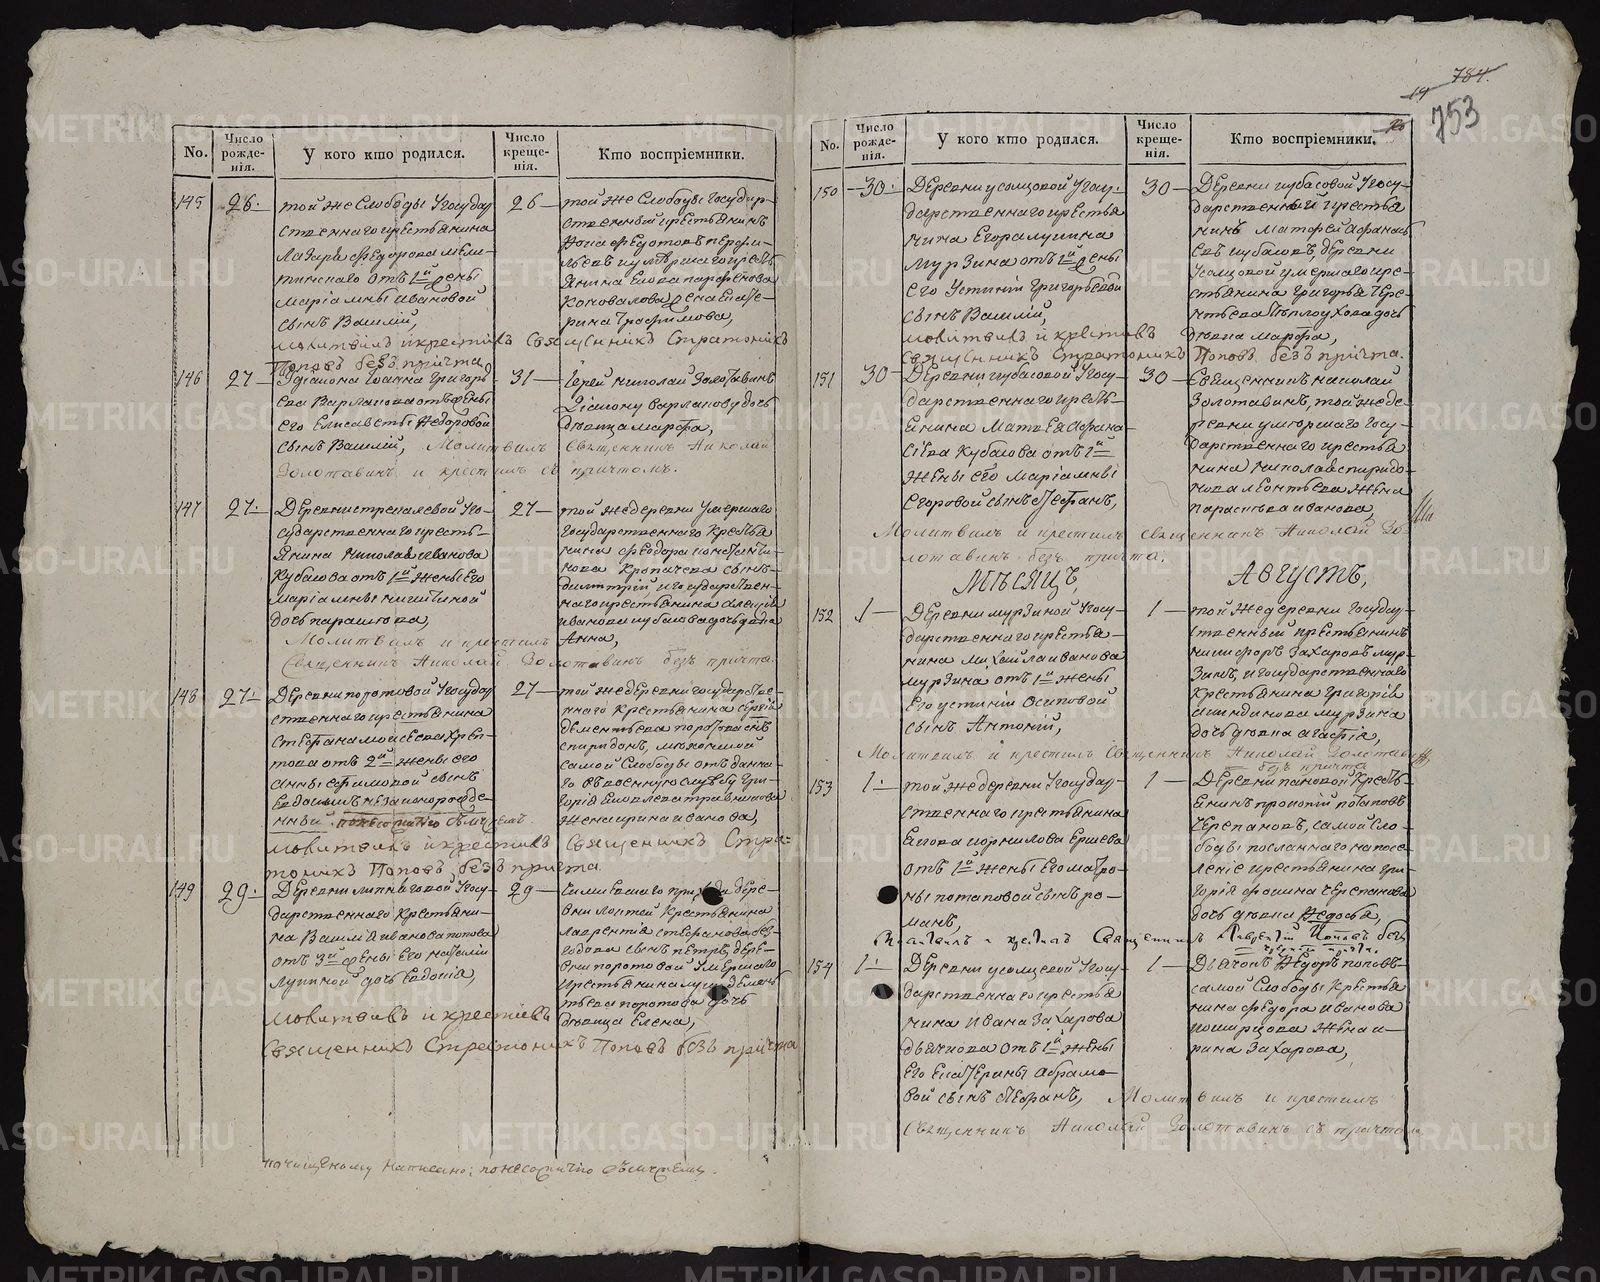 784.
14
753
No.
Число рожденія.
У кого кто родился.
Число крещенія.
Кто воспріемники.
145
26.
той же Слободы Государ
ственнаго крестьянина
Лазаря Федорова
тинскаго отъ 1й жены
Маріамны Ивановой
сынъ Василій,
26
той же Слободы Государ-
ственный крестьянинъ
умершаго кресть
янина Якова Парфенова
Коновалова жена Екате-
рина Трофимова,
молитвилъ и крестилъ Священникъ Стратоникъ
Поповъ безъ причта
146
27
Діакона Іоанна Григорь
ева Варлакова отъ жены
его Елисаветы Федоровой
сынъ Василій,
31
Іерей Николай Золотавинъ
Діакону Варлакову дочь
дѣвица Марфа,
Молитвилъ Священникъ Николай
Золотавинъ и крестилъ съ причтомъ.
147
27.
Деревни Го-
сударственнаго кресть-
янина Николая Иванова
Кубасова отъ 1й жены его
Маріамны Никитиной
дочь Параскова,
27
той же деревни умершаго
Государственнаго Крестья
нина Федора Константи-
нова Кропачева сынъ
Димитрій, и государствен-
наго крестьянина Алексія
Иванова Кубасова дочь дѣвка
Анна,
Молитвилъ и крестилъ
Священникъ Николай Золотавинъ безъ причта.
148
27.
Деревни Поротовой Государ
ственнаго крестьянина
Стефана Моисеева
това отъ 2й жены его
Анны Ефимовой сынъ
незаконорожде-
нный
27
той же деревни государстве-
ннаго крестьянина Сергія
Дементьева Поротова сынъ
Спиридонъ,
самой Слободы отъданна-
го въ военную службу Гри-
горія Яковлева
жена Ирина Иванова,
молитвилъ и крестилъ Священникъ Стра-
тоникъ Поповъ безъ причта.
149
29.
Деревни Госу-
дарственнаго Крестьяни-
на Василія Иванова Попова
отъ 3й жены его Наталіи
Лукиной дочь Евдокія,
29
дере-
вни Крестьянина
Лаврентія Стефанова
сынъ Петръ, дере-
вни Поротовой умершаго
крестьянина
Поротова дочь
дѣвица Елена,
молитвилъ и крестилъ
Священникъ Стратоникъ Поповъ безъ причта
почищеному написано:
No.
Число рожденія.
У кого кто родился.
Число крещенія.
Кто воспріемники.
150
30.
Деревни Усолцовой Госу-
дарственнаго крестья
нина Егора Лукина
Мурзина отъ 1й жены
его Устиніи Григорьевой
сынъ Василій,
30
Деревни Кубасовой Госу-
дарственный крестья
нинъ Матфей Афанась
евъ Кубасовъ, деревни
Усолцовой умершаго кре-
стьянина Григорья Тере-
нтьева дочь
дѣвка Марфа,
молитвилъ и крестилъ
Священникъ Стратоникъ Поповъ безъ причта.
151
30
Деревни Кубасовой Госу-
дарственнаго кресть-
янина Матвея Афана-
сіева Кубасова отъ 1й
жены его Маріамны
Егоровой сынъ Стефанъ,
30
Священникъ Николай
Золотавинъ, той же де-
ревни умершаго Госу-
дарственнаго крестья
нина Николая Спиридо-
нова Леонтьева жена
Параскева Иванова,
Молитвилъ и крестилъ Священникъ Николай Зо-
лотавинъ безъ причта.
Мѣсяцъ,
Августъ,
152
1
Деревни Мурзиной Госу-
дарственнаго крестья-
нина Михайла Иванова
Мурзина отъ 1й жены
его Устиніи Осиповой
сынъ Антоній,
1
той же деревни Государ-
ственный крестьянинъ
Никифоръ Захаровъ Мур-
зинъ, и государственнаго
Крестьянина Григорія
Мурзина
дочь дѣвка Агафія,
Молитвилъ и крестилъ Священникъ Николай Золотавинъ
безъ причта
153
1.
той же деревни Государ-
ственнаго крестьянина
Якова Корнилова Ершева
отъ 1й жены его Матро-
ны Потаповой сынъ Ро-
манъ,
1
Деревни Пановой Кресть-
янинъ Прокопій Потаповъ
Черепановъ, самой Сло-
боды посланнаго на посе-
леніе крестьянина Гри-
горія Фокина Черепанова
дочь дѣвка Федосья,
Молитвилъ и крестилъ Священникъ Лаврентій Поповъ безъ
154
1.
Деревни Усолцевой Госу-
дарственнаго крестья
нина Ивана Захарова
Дьячкова отъ 1й жены
Его Екатерины Абрамо-
вой сынъ Стефанъ,
1
Дьячокъ Федоръ Поповъ
самой Слободы Крестья
нина Федора Иванова
жена И-
рина Захарова,
Молитвилъ и крестилъ
Священникъ Николай Золотавинъ съ причтомъ